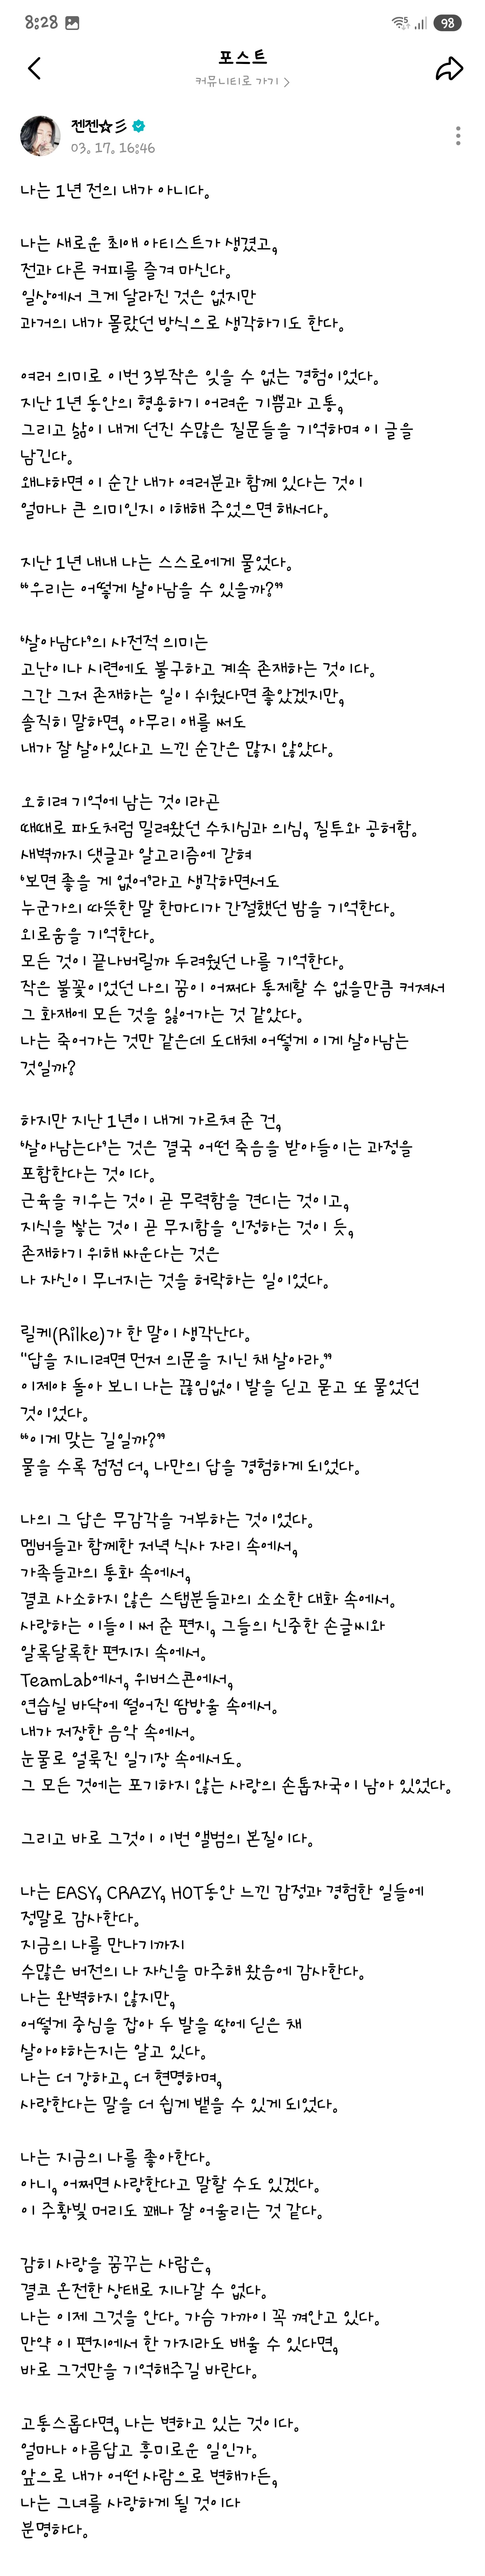 8:28
98
포스트
커뮤니티로 가기 >
젠젠☆彡
03. 17. 16:46
나는 1년 전의 내가 아니다.
나는 새로운 최애 아티스트가 생겼고,
전과 다른 커피를 즐겨 마신다.
일상에서 크게 달라진 것은 없지만
과거의 내가 몰랐던 방식으로 생각하기도 한다.
여러 의미로 이번 3부작은 잊을 수 없는 경험이었다.
지난 1년 동안의 형용하기 어려운 기쁨과 고통,
그리고 삶이 내게 던진 수많은 질문들을 기억하며 이 글을
남긴다.
왜냐하면 이 순간 내가 여러분과 함께 있다는 것이
얼마나 큰 의미인지 이해해 주었으면 해서다.
지난 1년 내내 나는 스스로에게 물었다.
“우리는 어떻게 살아남을 수 있을까?”
‘살아남다’의 사전적 의미는
고난이나 시련에도 불구하고 계속 존재하는 것이다.
그간 그저 존재하는 일이 쉬웠다면 좋았겠지만,
솔직히 말하면, 아무리 애를 써도
내가 잘 살아있다고 느낀 순간은 많지 않았다.
오히려 기억에 남는 것이라곤
때때로 파도처럼 밀려왔던 수치심과 의심, 질투와 공허함.
새벽까지 댓글과 알고리즘에 갇혀
‘보면 좋을 게 없어’라고 생각하면서도
누군가의 따뜻한 말 한마디가 간절했던 밤을 기억한다.
외로움을 기억한다.
모든 것이 끝나버릴까 두려웠던 나를 기억한다.
작은 불꽃이었던 나의 꿈이 어쩌다 통제할 수 없을만큼 커져서
그 화재에 모든 것을 잃어가는 것 같았다.
나는 죽어가는 것만 같은데 도대체 어떻게 이게 살아남는
것일까?
하지만 지난 1년이 내게 가르쳐 준 건,
‘살아남는다’는 것은 결국 어떤 죽음을 받아들이는 과정을
포함한다는 것이다.
근육을 키우는 것이 곧 무력함을 견디는 것이고,
지식을 쌓는 것이 곧 무지함을 인정하는 것이 듯,
존재하기 위해 싸운다는 것은
나 자신이 무너지는 것을 허락하는 일이었다.
릴케(Rilke)가 한 말이 생각난다.
"답을 지니려면 먼저 의문을 지닌 채 살아라.”
이제야 돌아 보니 나는 끊임없이 발을 딛고 묻고 또 물었던
것이었다.
“이게 맞는 길일까?”
물을 수록 점점 더, 나만의 답을 경험하게 되었다.
나의 그 답은 무감각을 거부하는 것이었다.
멤버들과 함께한 저녁 식사 자리 속에서,
가족들과의 통화 속에서,
결코 사소하지 않은 스탭분들과의 소소한 대화 속에서.
사랑하는 이들이 써 준 편지, 그들의 신중한 손글씨와
알록달록한 편지지 속에서.
TeamLab에서, 위버스콘에서,
연습실 바닥에 떨어진 땀방울 속에서.
내가 저장한 음악 속에서.
눈물로 얼룩진 일기장 속에서도.
그 모든 것에는 포기하지 않는 사랑의 손톱자국이 남아 있었다.
그리고 바로 그것이 이번 앨범의 본질이다.
나는 EASY, CRAZY, HOT동안 느낀 감정과 경험한 일들에
정말로 감사한다.
지금의 나를 만나기까지
수많은 버전의 나 자신을 마주해 왔음에 감사한다.
나는 완벽하지 않지만,
어떻게 중심을 잡아 두 발을 땅에 딛은 채
살아야하는지는 알고 있다.
나는 더 강하고, 더 현명하며,
사랑한다는 말을 더 쉽게 뱉을 수 있게 되었다.
나는 지금의 나를 좋아한다.
아니, 어쩌면 사랑한다고 말할 수도 있겠다.
이 주황빛 머리도 꽤나 잘 어울리는 것 같다.
감히 사랑을 꿈꾸는 사람은,
결코 온전한 상태로 지나갈 수 없다.
나는 이제 그것을 안다. 가슴 가까이 꼭 껴안고 있다.
만약 이 편지에서 한 가지라도 배울 수 있다면,
바로 그것만을 기억해주길 바란다.
고통스롭다면, 나는 변하고 있는 것이다.
얼마나 아름답고 흥미로운 일인가.
앞으로 내가 어떤 사람으로 변해가든,
나는 그녀를 사랑하게 될 것이다
분명하다.